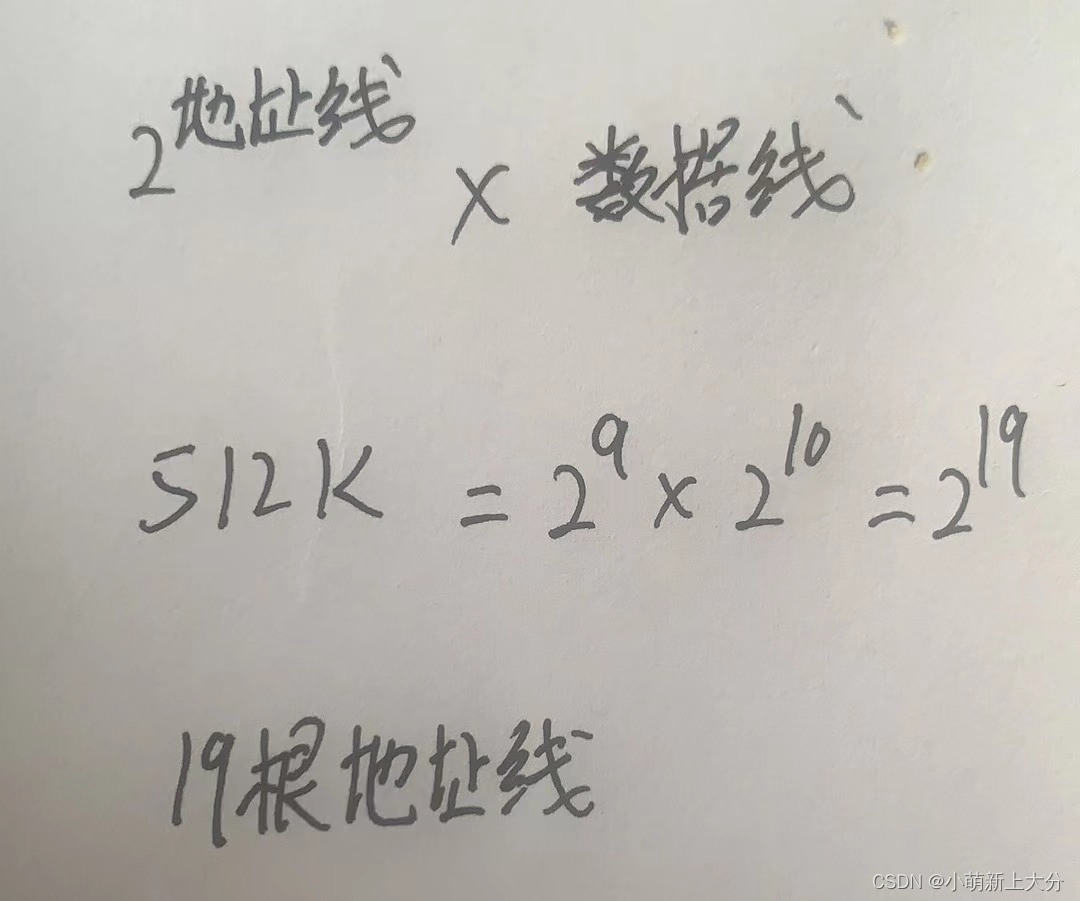 2^地址线 × 数据线
512K = 2^9 × 2^10 = 2^19
19根地址线
CSDN @小萌新上大分